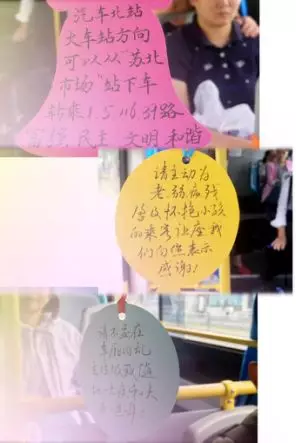 汽车北站
火车站方向
可以从"苏北
市场"站下车
转乘1.5.116.39路
富强 民主 文明 和谐
请主动为
老.弱.病.残
孕及怀抱小孩
的乘客让座我
们向您表示
感谢!
请不要在
车厢内乱